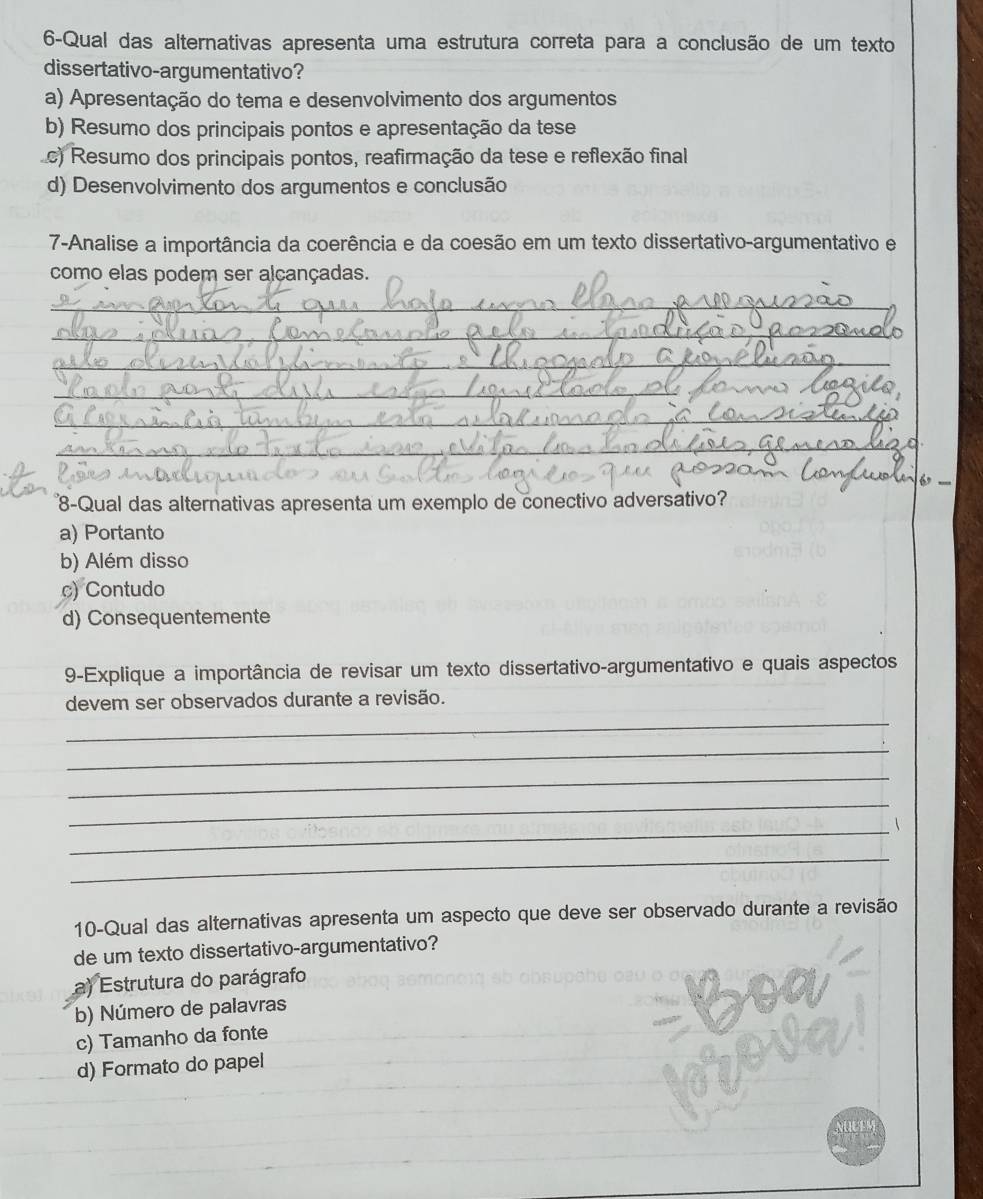 6-Qual das alternativas apresenta uma estrutura correta para a conclusão de um texto
dissertativo-argumentativo?
a) Apresentação do tema e desenvolvimento dos argumentos
b) Resumo dos principais pontos e apresentação da tese
c) Resumo dos principais pontos, reafirmação da tese e reflexão final
d) Desenvolvimento dos argumentos e conclusão
7-Analise a importância da coerência e da coesão em um texto dissertativo-argumentativo e
como elas podem ser alcançadas.
é importante que haja uma clara
das ideias, começando pela introdução, passando
pelo e chegando a conclusão
Cada parte esteja conectado de forma logica,
a coerência também está relacionada à consistencia
interna do texto isso, evitar contradições, generaliza
ções inadequados ou saltos logicos que possam confundir o
leitor
8-Qual das alternativas apresenta um exemplo de conectivo adversativo?
a) Portanto
b) Além disso
c) Contudo
d) Consequentemente
9-Explique a importância de revisar um texto dissertativo-argumentativo e quais aspectos
devem ser observados durante a revisão.
10-Qual das alternativas apresenta um aspecto que deve ser observado durante a revisão
de um texto dissertativo-argumentativo?
a) Estrutura do parágrafo
b) Número de palavras
c) Tamanho da fonte
d) Formato do papel
Boa
prova!